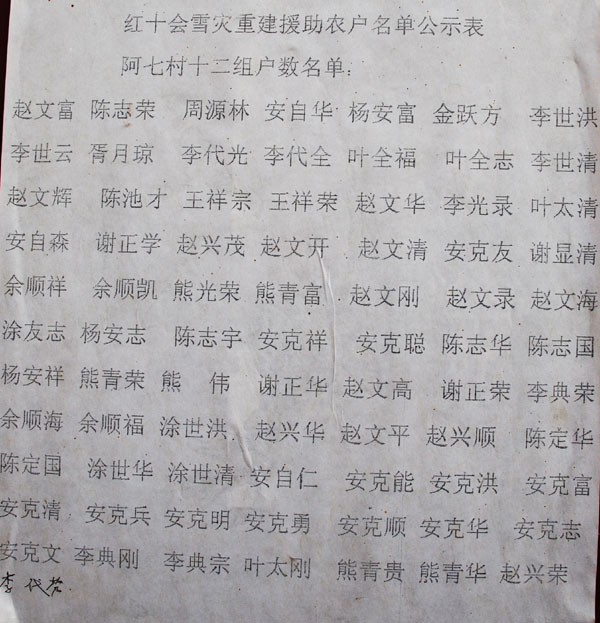 红十会雪灾重建援助农户名单公示表
阿七村十二组户数名单:
赵文富 陈志荣 周源林 安自华 杨安富 金跃方 李世洪
李世云 胥月琼 李代光 李代全 叶全福 叶全志 李世清
赵文辉 陈池才 王祥宗 王祥荣 赵文华 李光录 叶太清
安自森 谢正学 赵兴茂 赵文开 赵文清 安克友 谢显清
余顺祥 余顺凯 熊光荣 熊青富 赵文刚 赵文录 赵文海
涂友志 杨安志 陈志宇 安克祥 安克聪 陈志华 陈志国
杨安祥 熊青荣 熊 伟 谢正华 赵文高 谢正荣 李典荣
余顺海 余顺福 涂世洪 赵兴华 赵文平 赵兴顺 陈定华
陈定国 涂世华 涂世清 安自仁 安克能 安克洪 安克富
安克清 安克兵 安克明 安克勇 安克顺 安克华 安克志
安克文 李典刚 李典宗 叶太刚 熊青贵 熊青华 赵兴荣
李代